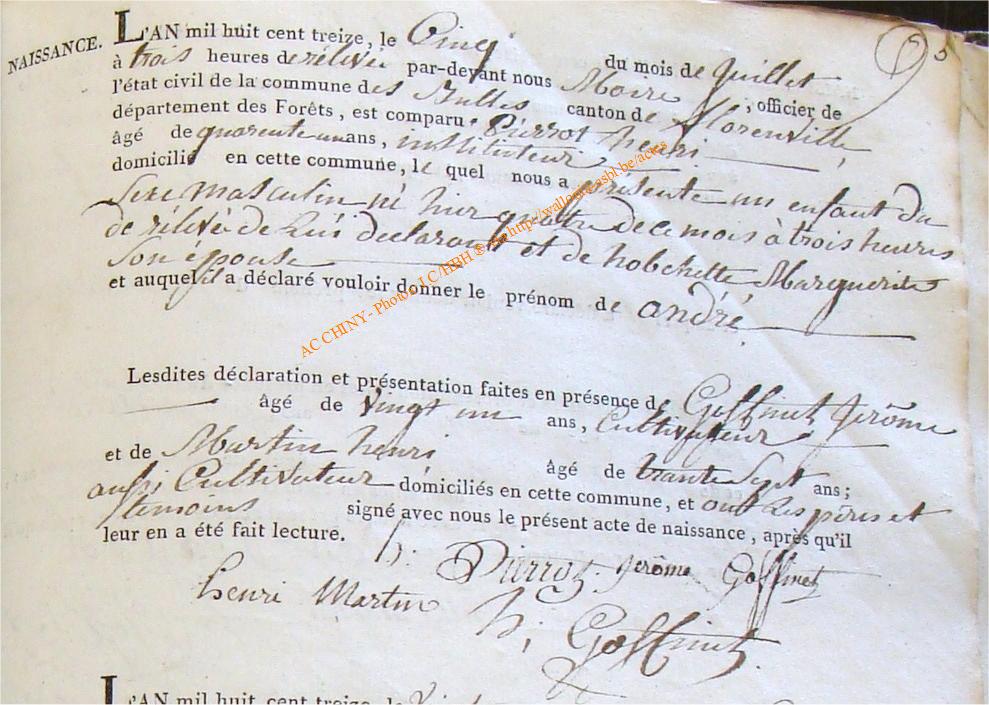 NAISSANCE.
5
L'AN mil huit cent treize, le Cinq du mois de Juillet
à trois heures de rélivée par-devant nous Maire, officier de
l'état civil de la commune des Bulles canton de Florenville,
département des Forêts, est comparu Pierrot henri
âgé de quarente un ans, instituteur
domicilié en cette commune, le quel nous a présenté un enfant du
Sexe masculin né hier quatre de ce mois à trois heures
de rélivée de Lui déclarant et de hobchette Marguerite
Son épouse
et auquel il a déclaré vouloir donner le prénom de andré
Lesdites déclaration et présentation faites en présence de Goffinet Jerôme
âgé de vingt un ans, Cultivateur
et de Martin henri âgé de trante Sept ans;
aussi Cultivateur domiciliés en cette commune, et ont Les pères et
temoins signé avec nous le présent acte de naissance, après qu'il
leur en a été fait lecture.
h. Pierrot. Jerôme Goffinet
henri Martin h; Goffinet.
L'AN mil huit cent treize, le
AC CHINY - Photos J.C/HBH © http://walloniasbl.be/actes